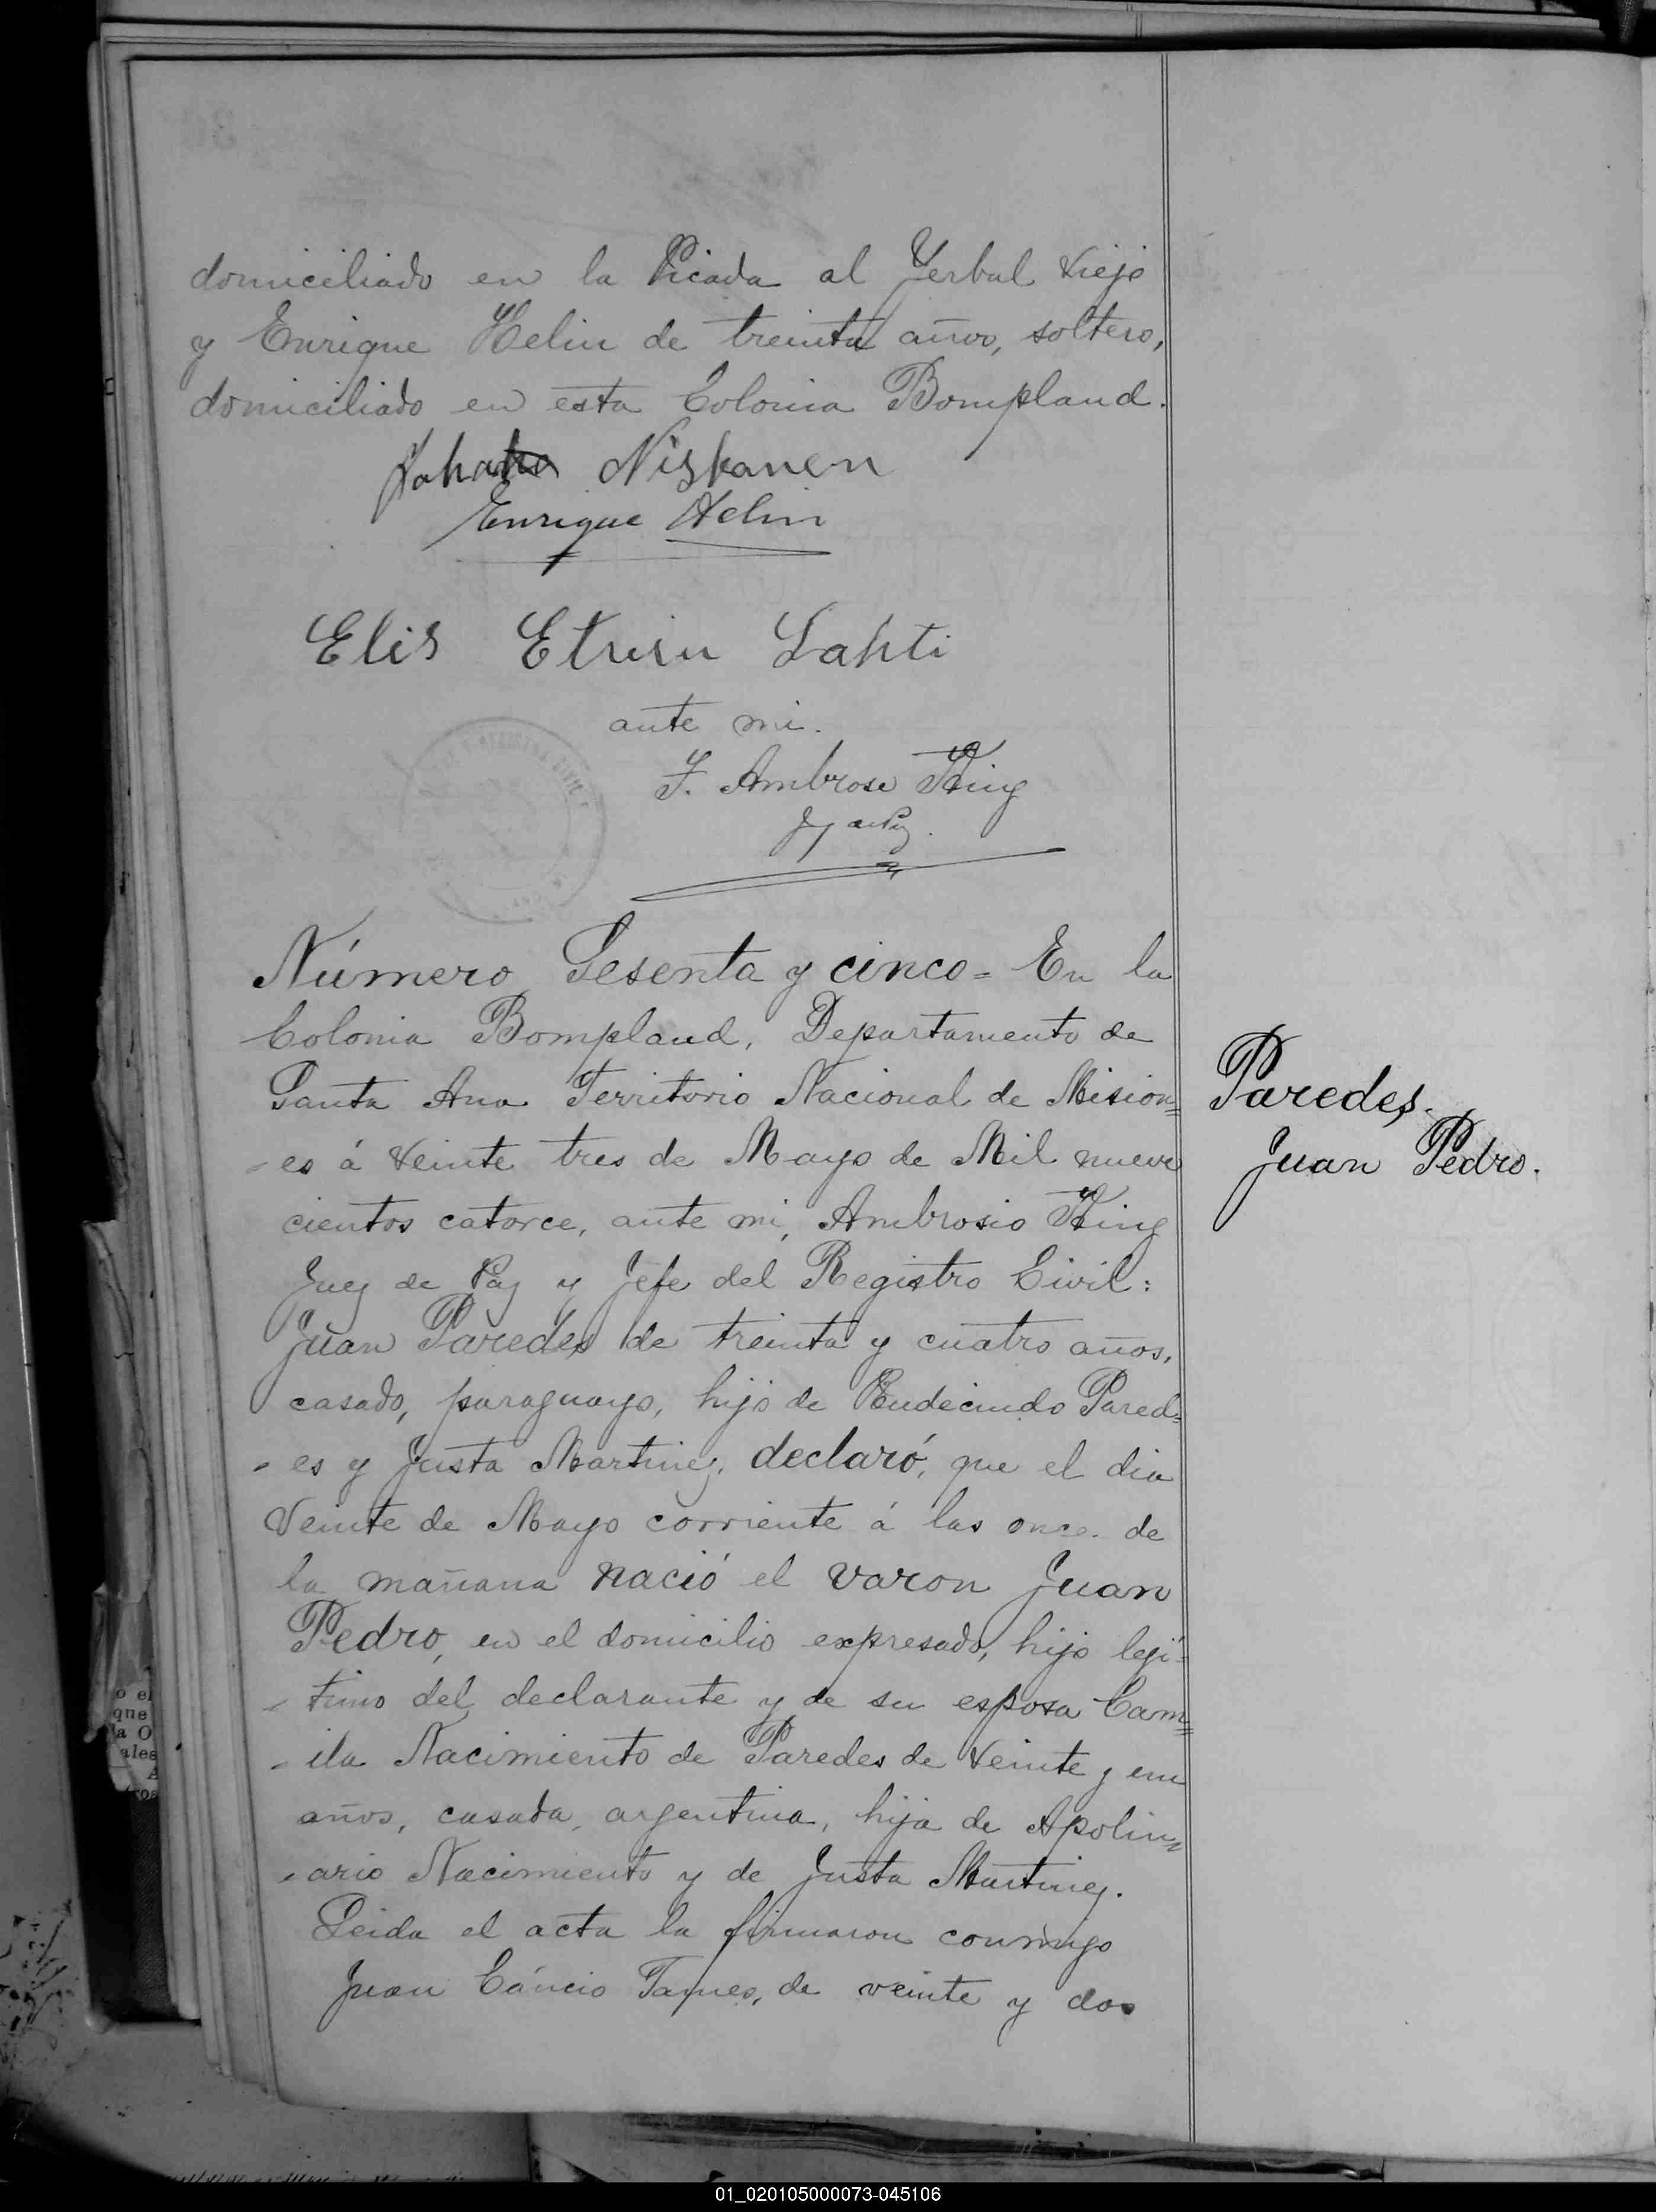 domiciliado en la Picada al Yerbal Viejo
y Enrique Helin de treinta años, soltero,
domiciliado en esta Colonia Bompland.
Niskanen
Enrique Helin
Elis Lahti
ante mi.
F. Ambrose King
REGISTRO CIVIL
Número Sesenta y cinco = En la
Colonia Bompland, Departamento de
Santa Ana Territorio Nacional de Mision=
-es á Veinte tres de Mayo de Mil nueve
cientos catorce, ante mi, Ambrosio King
Juez de Paz y Jefe del Registro Civil:
Juan Paredes de treinta y cuatro años,
casado, paraguayo, hijo de Rudecindo Pared=
-es y Justa Martinez, declaró, que el dia
Veinte de Mayo corriente á las once de
la mañana nació el varon Juan
Pedro, en el domicilio expresado, hijo leji=
-timo del declarante y de su esposa Cam=
-ila Nacimiento de Paredes de Veinte y un
años, casada, argentina, hija de Apolin=
-ario Nacimiento y de Justa Martinez.
Leida el acta la firmaron conmigo
Juan Cáncio de veinte y dos
Paredes.
Juan Pedro.
o el
que
a O
ales
01_020105000073-045106